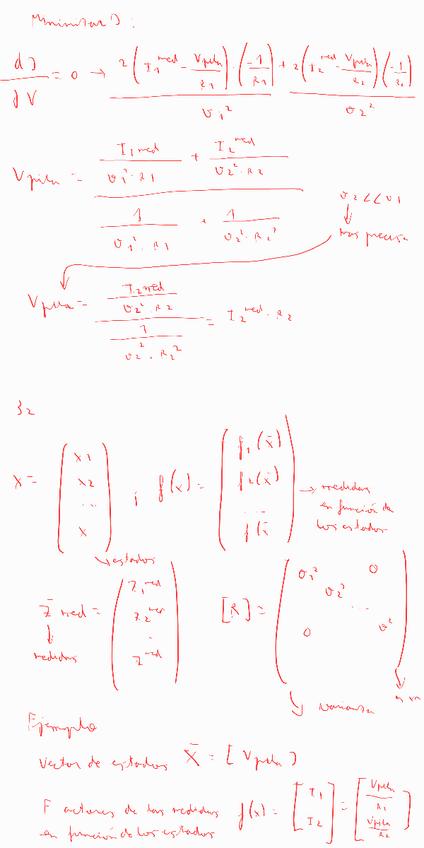 Minimizar J:
dJ/dV = 0 → 2(I₁^med - Vpila/R₁)·(-1/R₁)/σ₁² + 2(I₂^med - Vpila/R₂)(-1/R₂)/σ₂²
Vpila = (I₁med/(σ₁²·R₁) + I₂^med/(σ₂²·R₂)) / (1/(σ₁²·R₁) + 1/(σ₂²·R₂²))
σ₂<<σ₁
↓
mas precisa
Vpila = (I₂med/(σ₂²·R₂)) / (1/(σ₂²·R₂²)) = I₂^med·R₂
32
x̄ = (x₁ x₂ ... x) ; f(x) = (f₁(x̄) f₂(x̄) ... f(x̄)) → medidas
en función de
los estados
↘ estados
z̄ med = (z₁^med z₂^med . z^med) [R] = (σ₁² 0 σ₂² ... 0 σ²)
↓
medidas
↘ varianza
Ejemplo
Vector de estados X̄ = [Vpila]
F actores de las medidas f(x) = [I₁ I₂] = [Vpila/R₁ Vpila/R₂]
en función de los estados